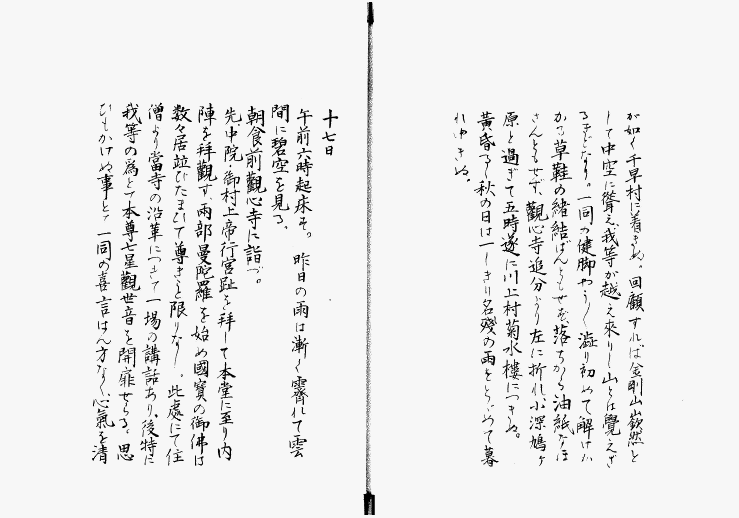 が如く千早村に着きぬ。回顧すれば金剛山巍然と
して中空に聳え我等が越え來りし山とは覺えざ
るほどなり。一同の健脚やうやく澁り初めて解けか
かる草鞋の緒結ばんともせず落ちかゝる油紙なほ
さんともせず、觀心寺追分より左に折れ小深鳩ヶ
原と過ぎて五時遂に川上村菊水樓につきぬ。
黄昏るゝ秋の日は一しきり名殘の雨をとゞめて暮
れゆきぬ。
十七日
午前六時起床す。昨日の雨は漸く霽れて雲
間に碧空を見る。
朝食前觀心寺に詣づ。
先中院・御村上帝行宮趾を拜して本堂に至り内
陣を拜觀す、兩部曼陀羅を始め國寶の御佛は
数々居竝びたまひて尊きこと限りなし。此處にて住
僧より當寺の沿革につきて一場の講話あり、後特に
我等の爲とて本尊七星觀世音を開扉せらる。思
ひもかけぬ事とて一同の喜言はん方なく、心氣を清